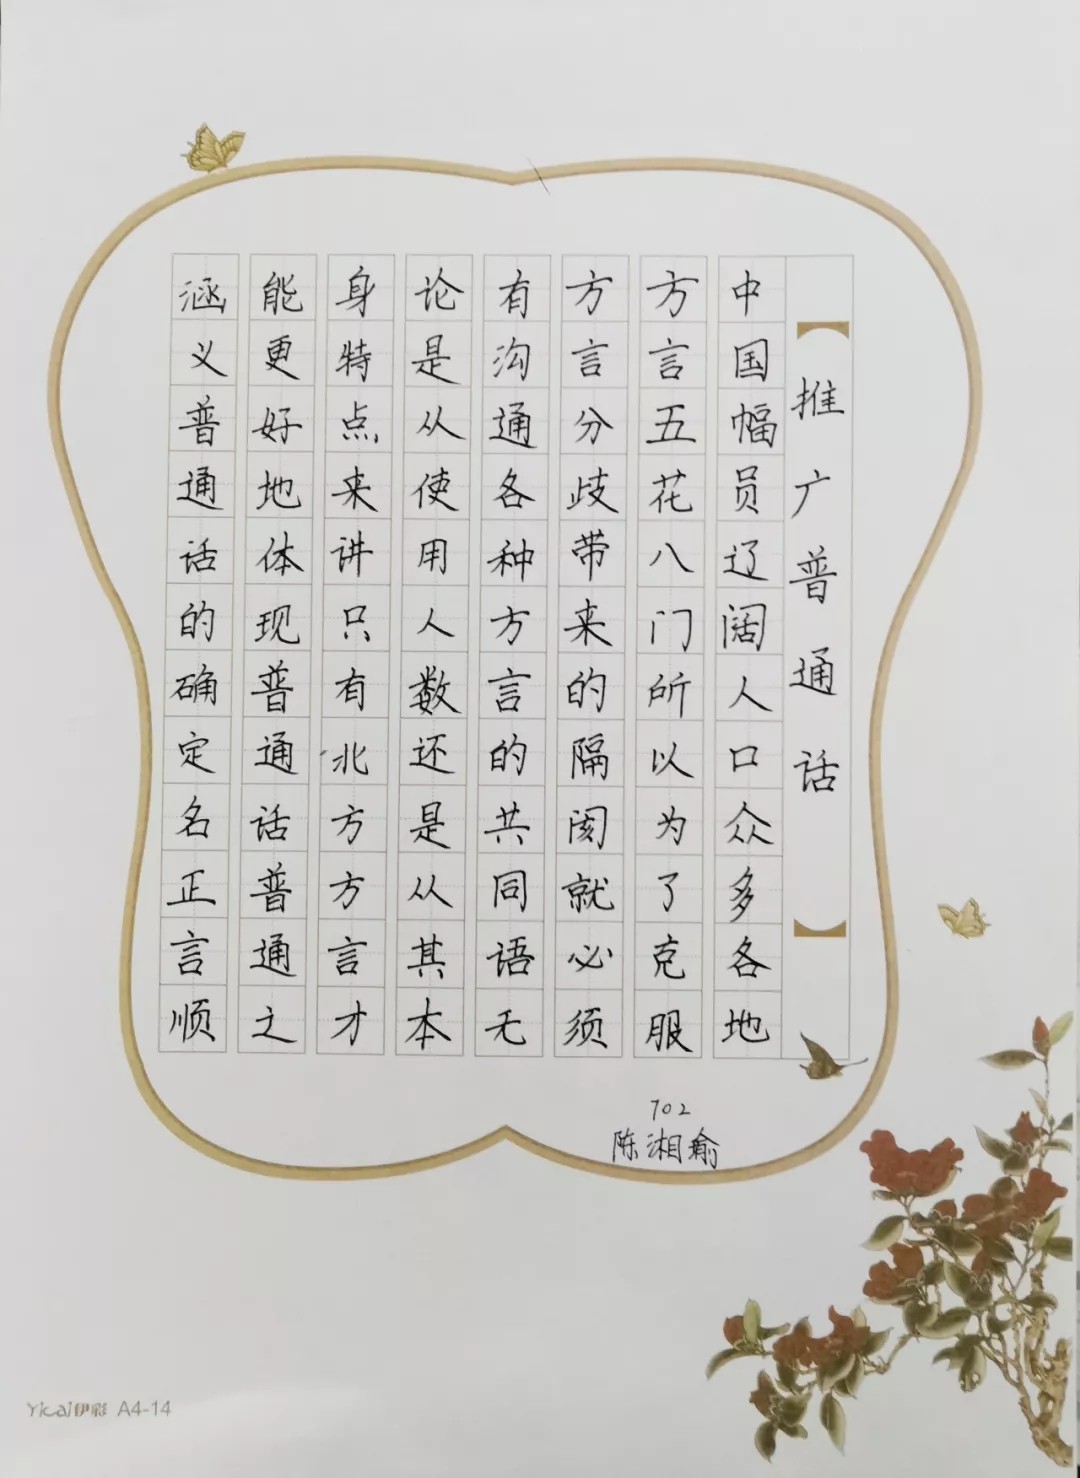 【推广普通话】
中国幅员辽阔人口众多各地
方言五花八门所以为了克服
方言分歧带来的隔阂就必须
有沟通各种方言的共同语无
论是从使用人数还是从其本
身特点来讲只有北方方言才
能更好地体现普通话普通之
涵义普通话的确定名正言顺
702
陈湘瑜
Yicai伊彩 A4-14